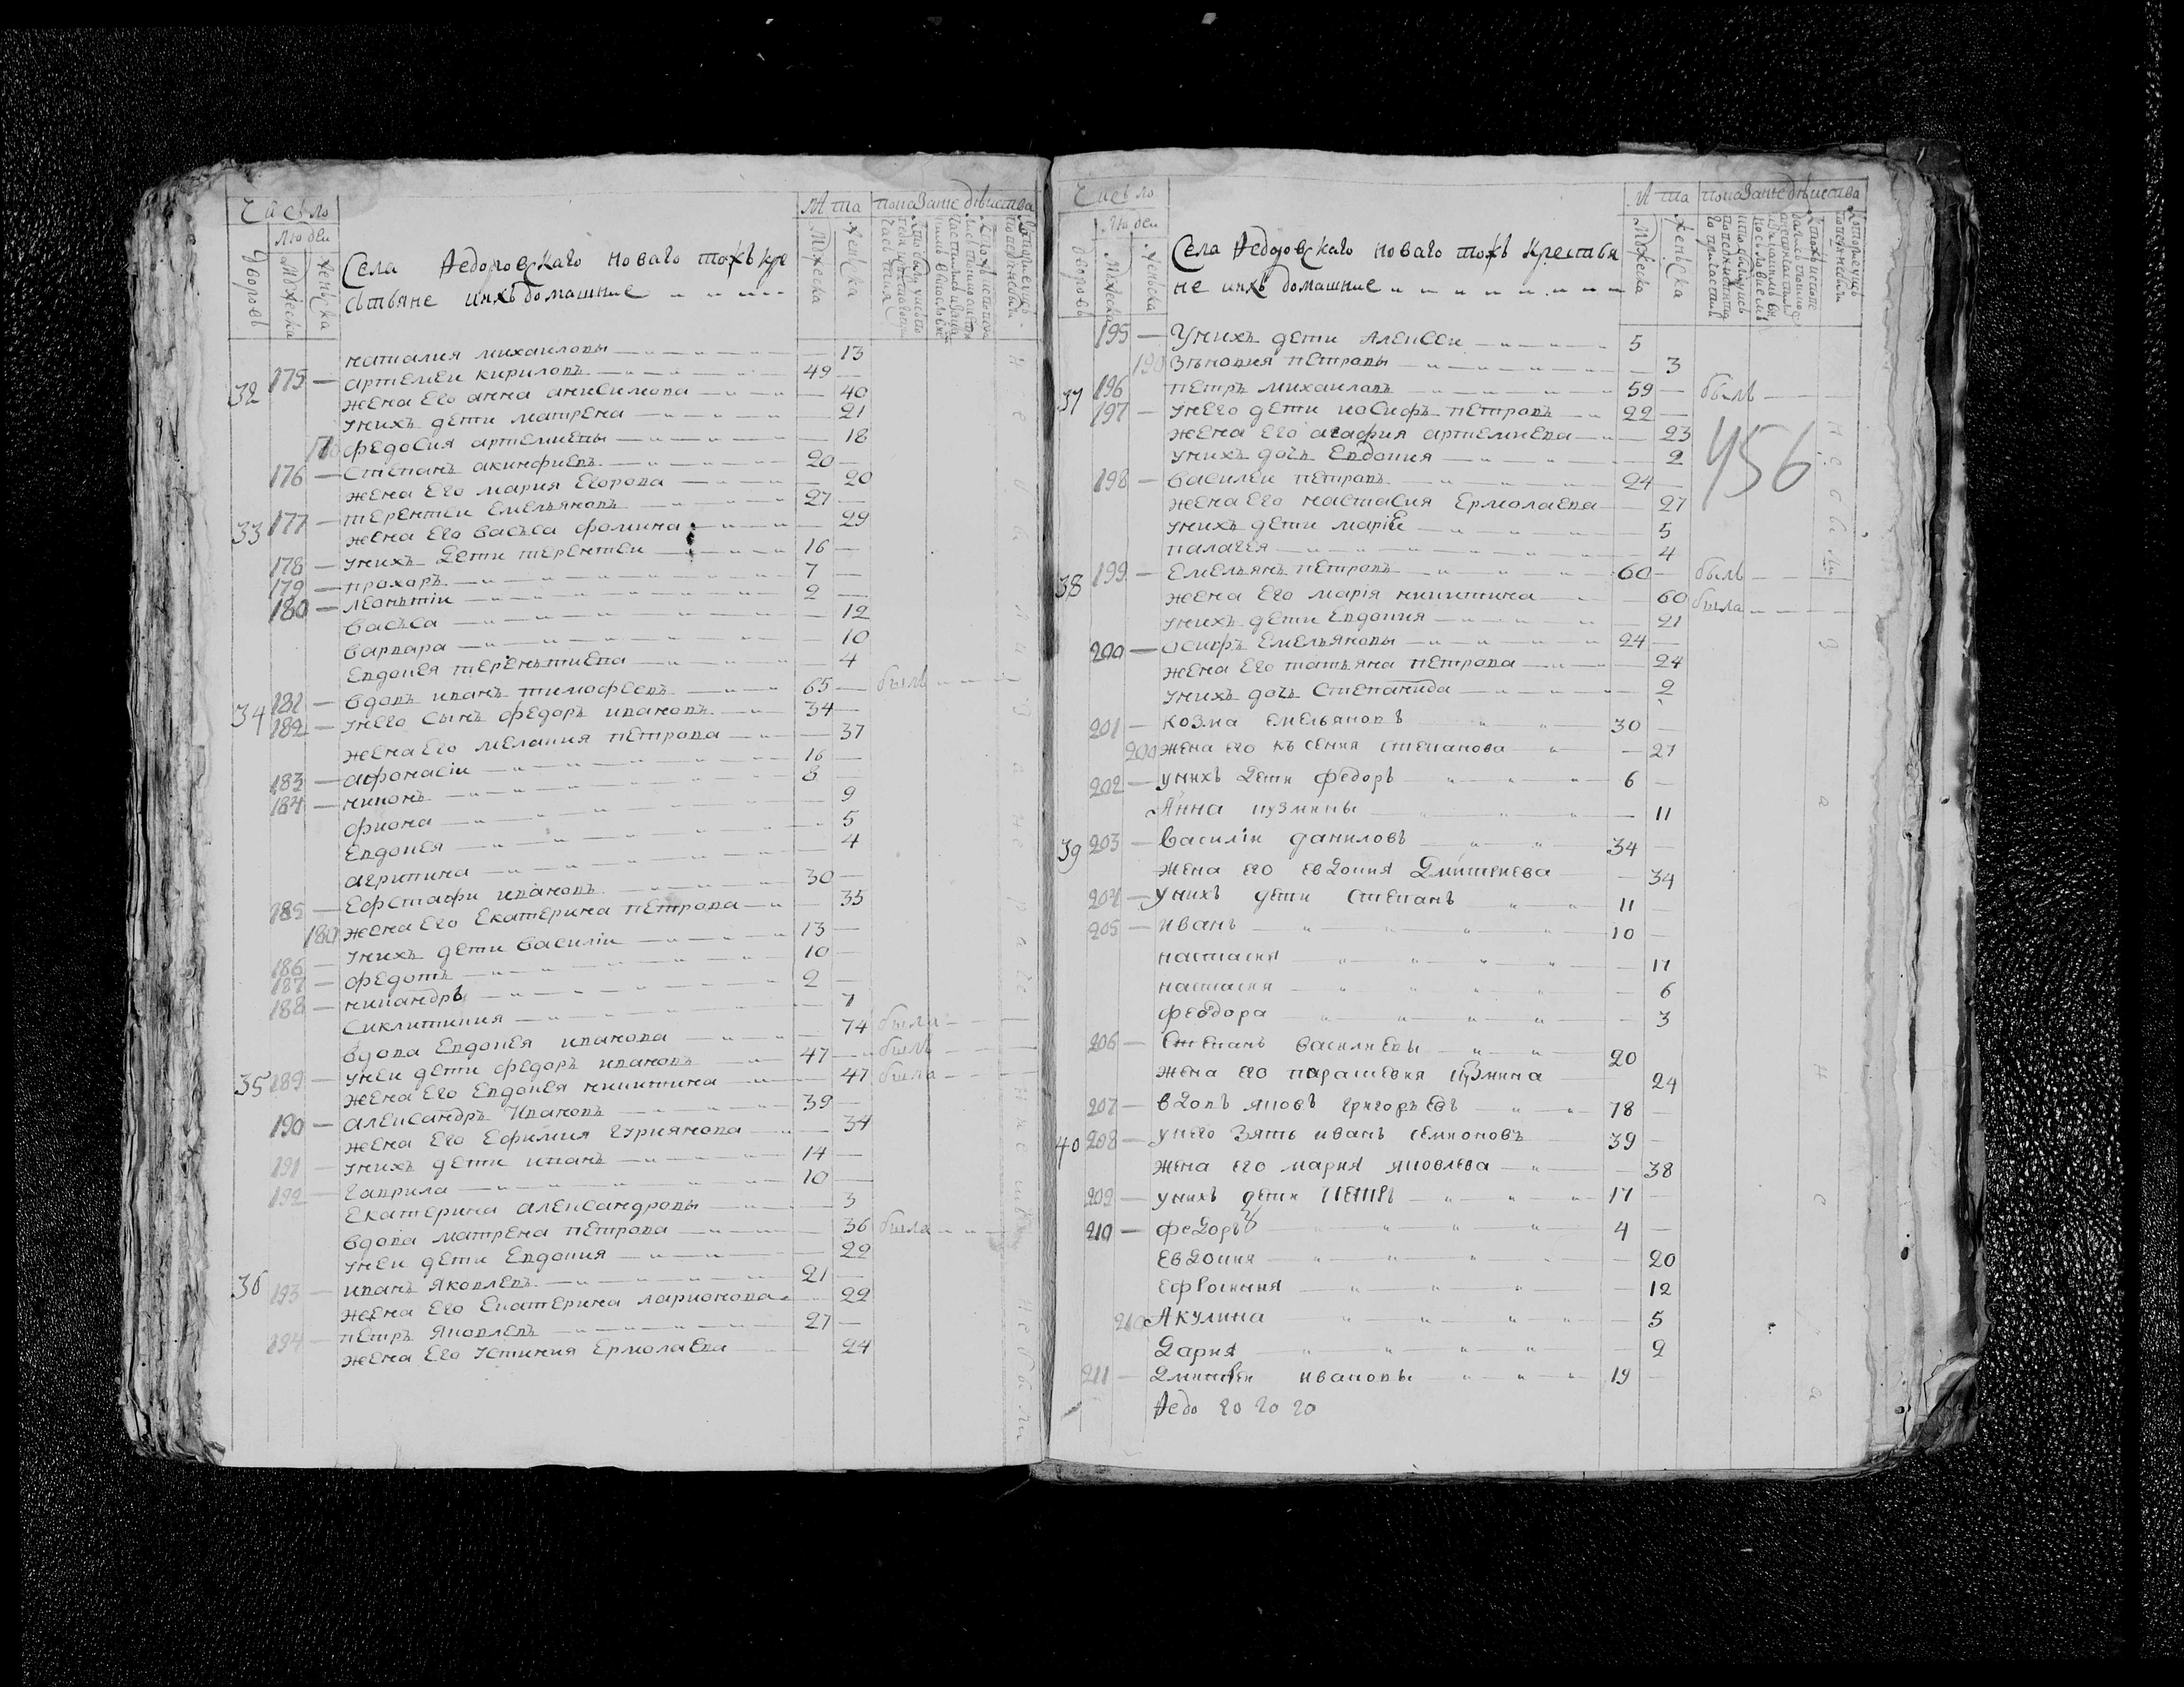 Число
Людеи
дворовъ
Мужеска
женьска
Села Федоровскаго новаго тожъ кре
стьяне ихъ домашние
Лѣта
Мужеска
женска
показание дѣиства
наталия михаиловы — 13
32 175 — артемеи кириловъ — 49
жена его анна анисимова — 40
унихъ дети матрена — 21
170 федосия артемиевы — 18
176 — степанъ акинфиевъ — 20
жена его мария егорова — 20
33 177 — терентеи емельяновъ — 27
жена его васъса фомина — 29
178 — унихъ дети терентеи — 16
179 — прохоръ — 7
180 — леонътии — 2
васъса — 12
варвара — 10
евдокея теренътиева — 4
34 181 — вдовъ иванъ тимофеевъ — 65 — былъ
182 — унего сынъ федоръ ивановъ — 34
жена его мелания петрова — 37
183 — афонасіи — 16
184 — никонъ — 8
фиона — 9
евдокея — 5
агрипина — 4
185 — ефстафи ивановъ — 30
180 жена его екатерина петрова — 35
186 — унихъ дети василіи — 13
187 — федотъ — 10
188 — никандръ — 2
сиклитикия — 7
вдова евдокея иванова — 74 была
35 189 — унеи дети федоръ ивановъ — 47 — былъ
жена его евдокея никитина — 47 была
190 — александръ ивановъ — 39
жена его ефимия гурнянова — 34
191 — унихъ дети иванъ — 14
192 — гаврила — 10
екатерина александровы — 3
вдова матрена петрова — 36 была
унеи дети евдокия — 22
36 193 — иванъ яковлевъ — 21
жена его екатерина ларионова — 22
194 — петръ яковлевъ — 27
жена его устиния ермолаева — 24
Число
Людеи
дворовъ
Мужеска
женьска
Села Федоровскаго новаго тожъ крестья
не ихъ домашние
Лѣта
Мужеска
женска
показание дѣиства
195 — Унихъ дети Алексеи — 5
190 Зѣновия петровы — 3
37 196 петръ михаиловъ — 59 — былъ
197 — унего дети иосифъ петровъ — 22
жена его агафия артемиева — 23
456
унихъ дочь евдокия — 2
198 — василеи петровъ — 24
жена его настасия ермолаева — 27
унихъ дети маріе — 5
палагея — 4
38 199 — емельянъ петровъ — 60 — былъ
жена его марія никитина — 60 была
унихъ дети евдокия — 21
200 — осифъ емельяновы — 24
жена его татьяна петрова — 24
унихъ дочь степанида — 2
201 — козма емельяновъ — 30
200 жена его късения степанова — 27
202 — унихъ дети федоръ — 6
Анна кузмины — 11
39 203 — василіи даниловъ — 34
жена его евдокия дмитиева — 34
204 — унихъ дети степанъ — 11
205 — иванъ — 10
настасия — 17
настасия — 6
феодора — 3
206 — степанъ василиевы — 20
жена его парасцевия кузмина — 24
207 — вдовъ яковъ григорьевъ — 78
40 208 — унего зять иванъ семионовъ — 39
жена его мария яковлева — 38
209 — унихъ дети петръ — 17
210 — федоръ — 4
евдокия — 20
ефросиния — 12
210 Акулина — 5
Дария — 2
211 — Дмитреи ивановы — 19
Федо го го го